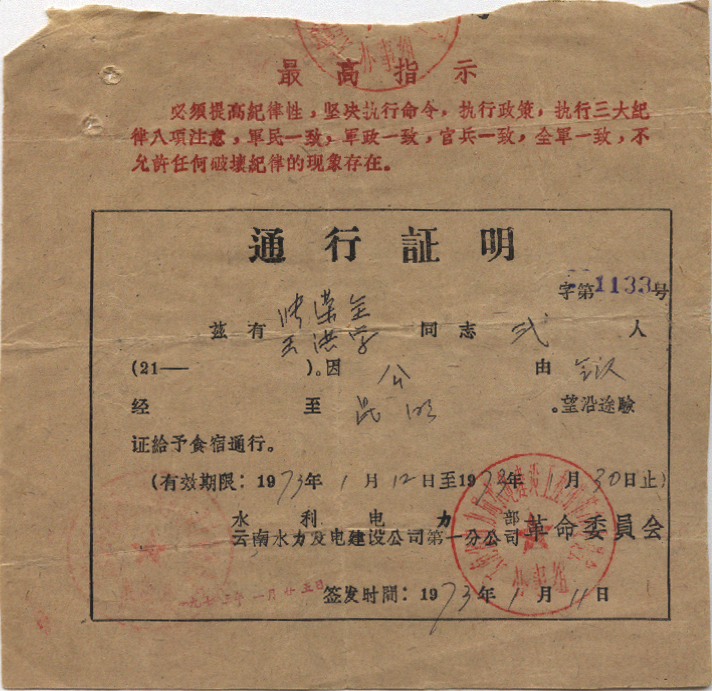 最高指示
必须提高紀律性，坚决执行命令，执行政策，执行三大紀
律八項注意，軍民一致，軍政一致，官兵一致，全軍一致，不
允許任何破壞紀律的现象存在。
通行証明
字第1133号
茲有 同志 弍 人
(21— )。因 公 由
经 至 昆明 。望沿途驗
证給予食宿通行。
(有效期限：1973年1月12日至1973年1月30日止)
水利电力部
云南水力发电建设公司第一分公司革命委員会
办事組
签发时間：1973年1月11日
一九七三年一月廿五日